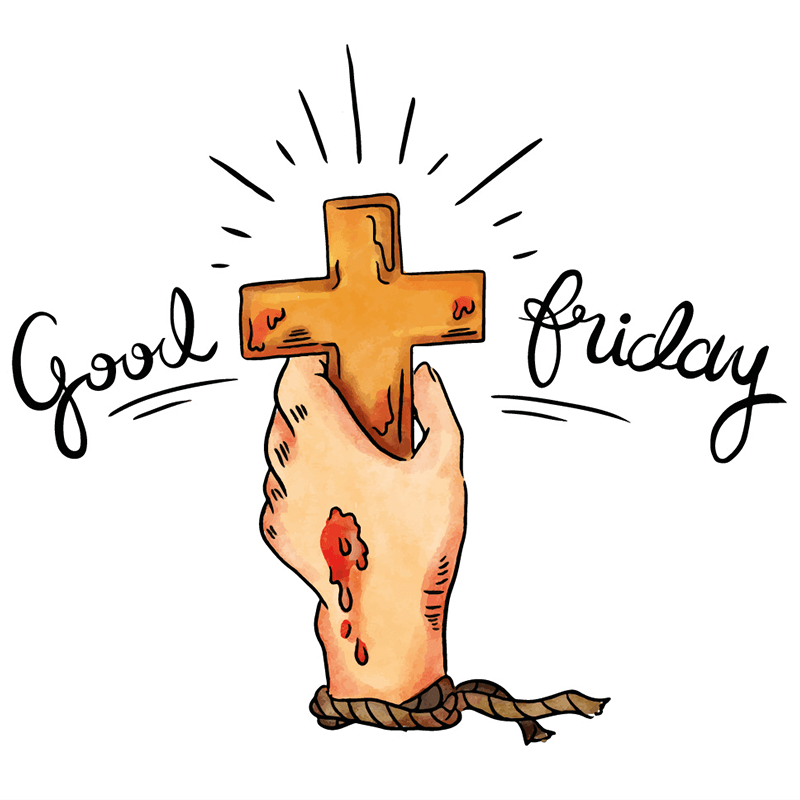 Good friday